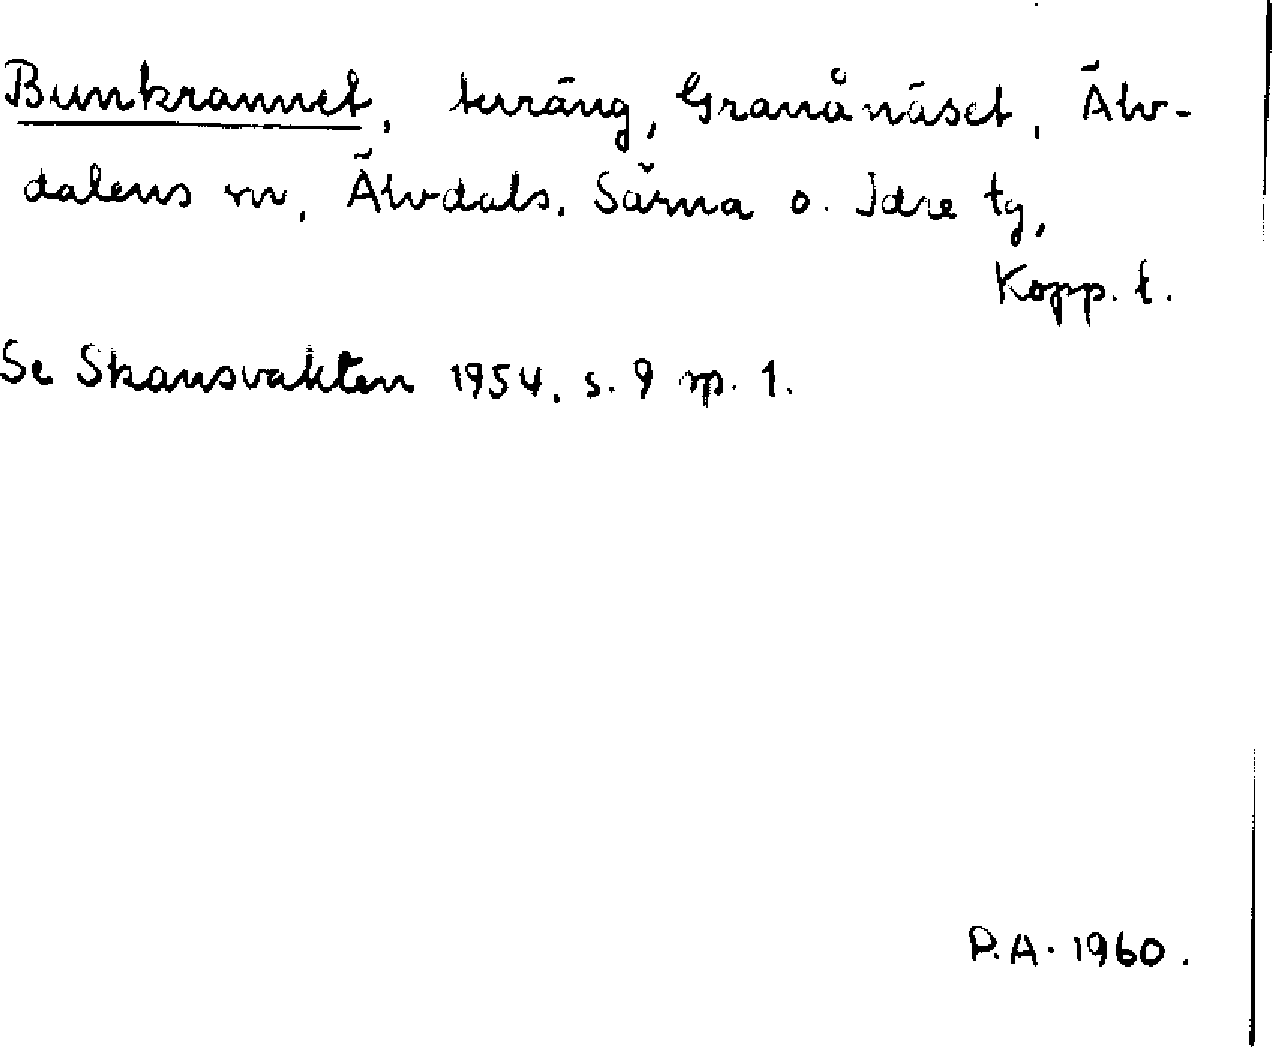 Bunkrannet, terräng, Granånäset, Älv-
dalens sn, Älvdals, Särna o. Idre tg,
Kopp. l.
Se Skansvakten 1954, s. 9 sp. 1.
P.A. 1960.